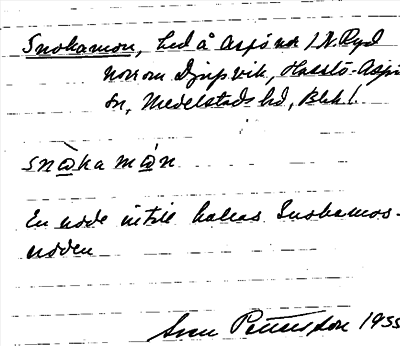 Snokamon, hed å Aspö nor /N. Ryd
norr om Djupvik, Hasslö-Aspö
sn, Medelstads hd, Blek l.
snωkamωn
En udde intill kallas Snokamos-
udden
Sven Pettersson 1935